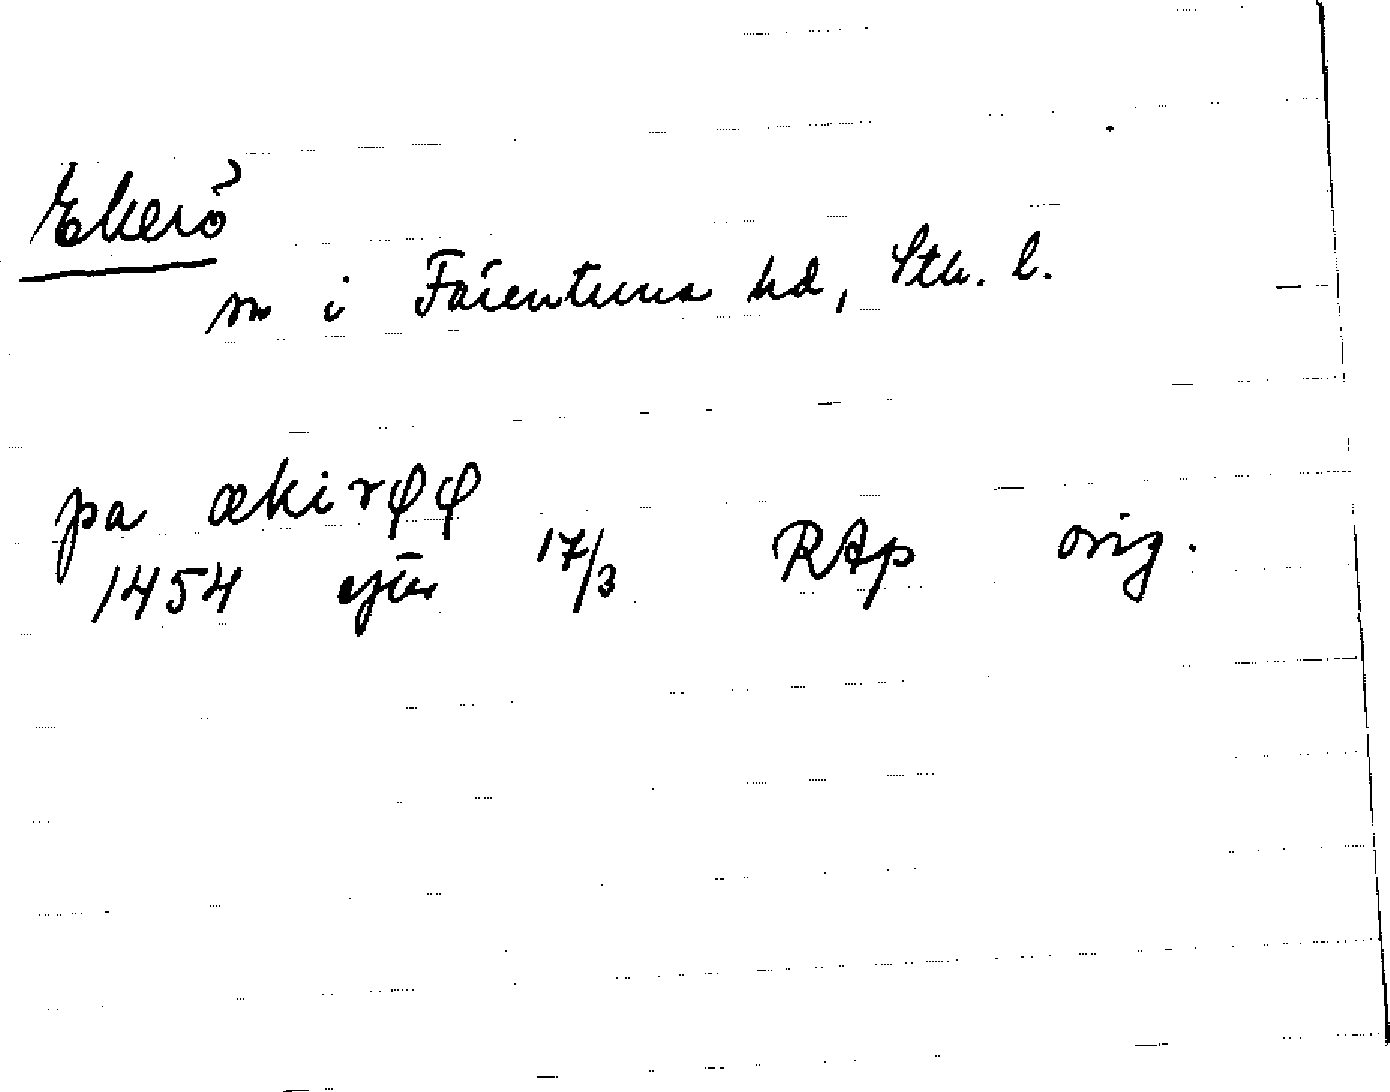 Ekerö
sn i Färentuna hd, Sth. l.
pa ækirøø
1454 17/3 RAp orig.